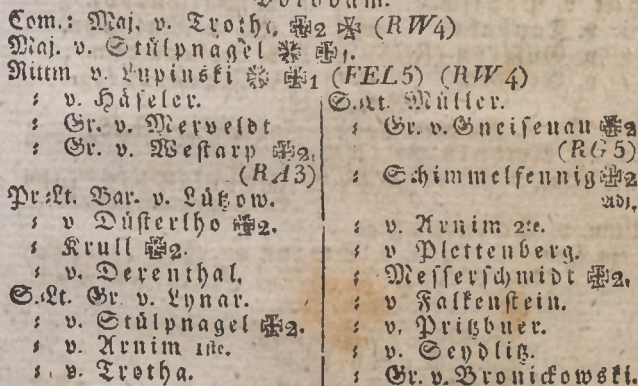 Potsdam.
Com.: Maj. v. Trotha ✠2 (RW4)
Maj. v. Stülpnagel ✠1.
Rittm v. Lupinski ✠1 (FEL5) (RW4)
: v. Häseler.
: Gr. v. Merveldt
: Gr. v. Westarp ✠2.
(RA3)
Pr.Lt. Bar. v. Lützow.
: v Düsterlho ✠2.
: Krull ✠2.
: v. Derenthal.
S.Lt. Gr. v. Lynar.
: v. Stülpnagel ✠2.
: v. Arnim 1ste.
: v. Trotha.
S.Lt. Müller.
: Gr. v. Gneisenau ✠2
(RG5)
: Schimmelfennig ✠2
Adj.
: v. Arnim 2te.
: v Plettenberg.
: Messerschmidt ✠2.
: v Falkenstein.
: v. Pritzbuer.
: v. Seydlitz.
: Gr. v. Bronickowski.